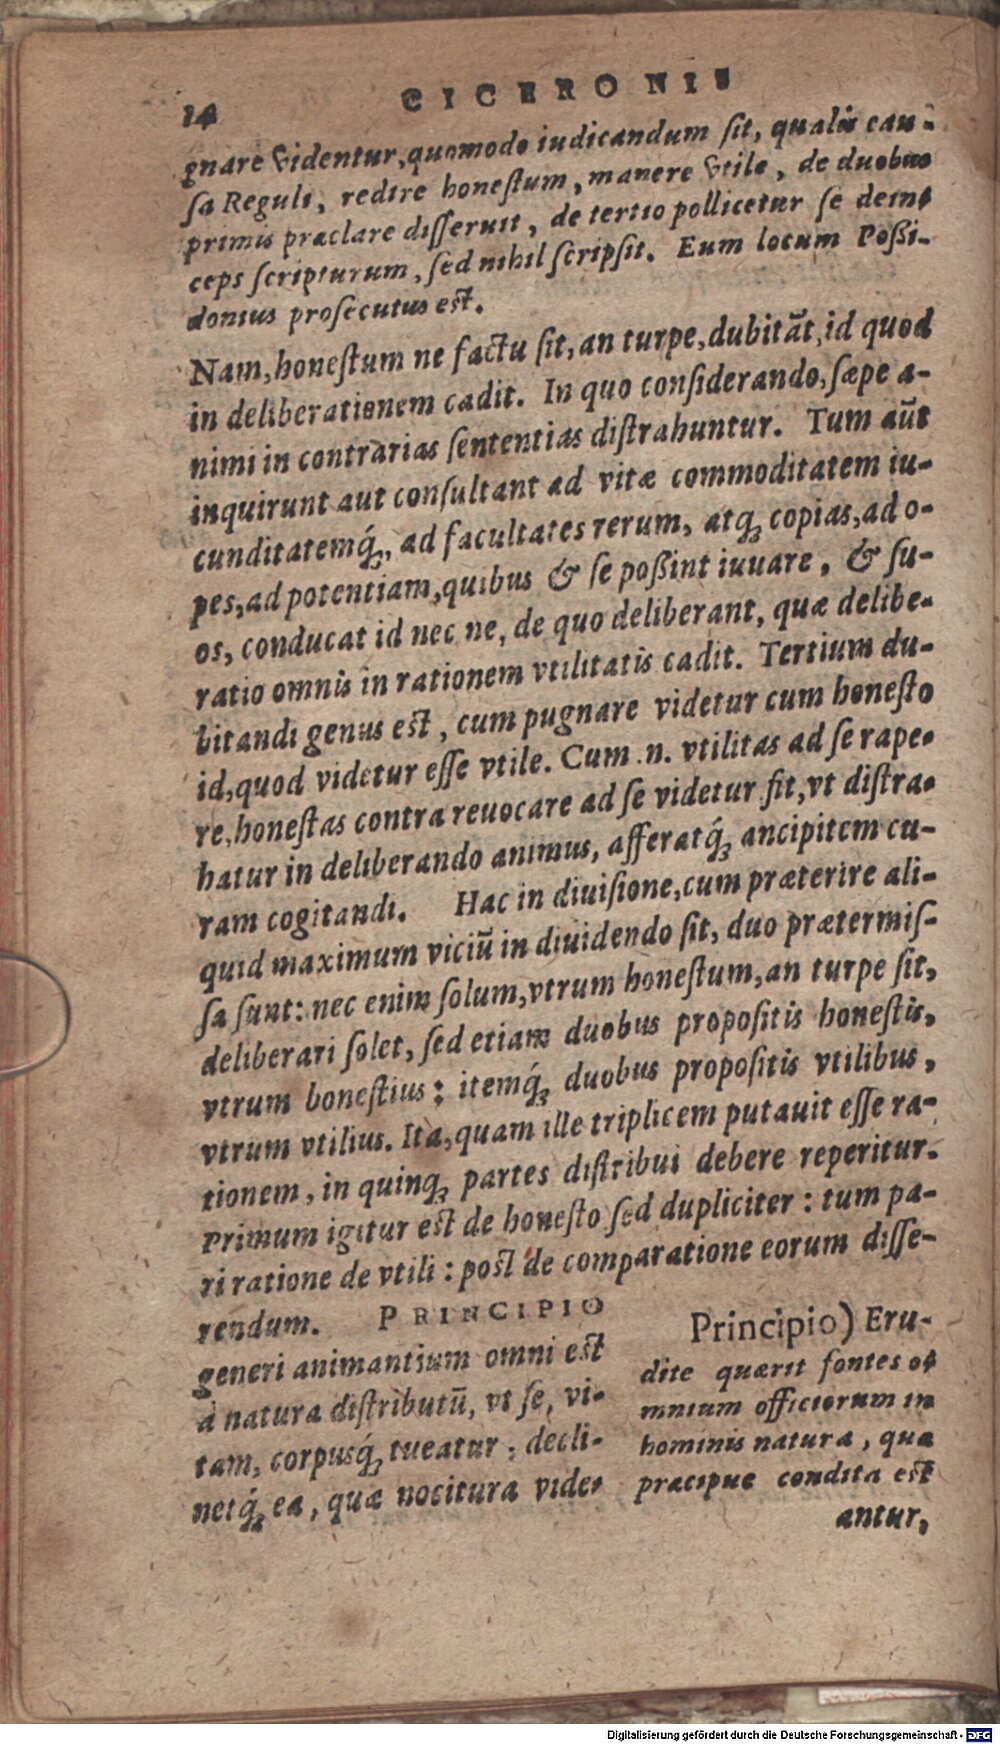 14 CICERONIS
gnare videntur, quomodo iudicandum ſit, qualis cau-
ſa Reguli, redire honeſtum, manere vtile, de duobus
primis præclare diſſeruit, de tertio pollicetur ſe dein-
ceps ſcripturum, ſed nihil ſcripſit. Eum locum Poßi-
donius proſecutus eſt.
Nam, honeſtum ne factu ſit, an turpe, dubitãt, id quod
in deliberationem cadit. In quo conſiderando, ſæpe a-
nimi in contrarias ſententias diſtrahuntur. Tum aũt
inquirunt aut conſultant ad vitæ commoditatem iu-
cunditatemq́;, ad facultates rerum, atq; copias, ad o-
pes, ad potentiam, quibus & ſe poßint iuuare, & ſu-
os, conducat id nec ne, de quo deliberant, quæ delibe-
ratio omnis in rationem vtilitatis cadit. Tertium du-
bitandi genus eſt, cum pugnare videtur cum honeſto
id, quod videtur eſſe vtile. Cum .n. vtilitas ad ſe rape-
re, honeſtas contra reuocare ad ſe videtur fit, vt diſtra-
hatur in deliberando animus, afferatq́; ancipitem cu-
ram cogitandi. Hac in diuiſione, cum præterire ali-
quid maximum viciũ in diuidendo ſit, duo prætermiſ-
ſa ſunt: nec enim ſolum, vtrum honeſtum, an turpe ſit,
deliberari ſolet, ſed etiam duobus propoſitis honeſtis,
vtrum honeſtius: itemq́; duobus propoſitis vtilibus,
vtrum vtilius. Ita, quam ille triplicem putauit eſſe ra-
tionem, in quinq; partes diſtribui debere reperitur.
Primum igitur eſt de honeſto ſed dupliciter: tum pa-
ri ratione de vtili: poſt de comparatione eorum diſſe-
rendum. PRINCIPIO
generi animantium omni eſt
à natura diſtributũ, vt ſe, vi-
tam, corpusq́; tueatur, decli-
netq́; ea, quæ nocitura vide-
Principio) Eru-
dite quærit fontes o-
mnium officiorum in
hominis natura, quæ
præcipue condita eſt
antur,
Digitalisierung gefördert durch die Deutsche Forschungsgemeinschaft - DFG